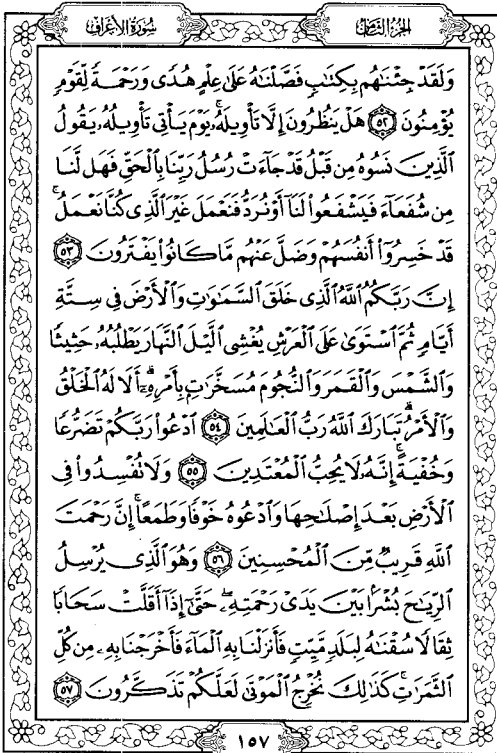 الجزء الثامن
سورة الأعراف
وَلَقَدْ جِئْنَٰهُم بِكِتَٰبٍ فَصَّلْنَٰهُ عَلَىٰ عِلْمٍ هُدًى وَرَحْمَةً لِّقَوْمٍ
يُؤْمِنُونَ ٥٢ هَلْ يَنظُرُونَ إِلَّا تَأْوِيلَهُۥ ۚ يَوْمَ يَأْتِى تَأْوِيلُهُۥ يَقُولُ
ٱلَّذِينَ نَسُوهُ مِن قَبْلُ قَدْ جَآءَتْ رُسُلُ رَبِّنَا بِٱلْحَقِّ فَهَل لَّنَا
مِن شُفَعَآءَ فَيَشْفَعُوا۟ لَنَآ أَوْ نُرَدُّ فَنَعْمَلَ غَيْرَ ٱلَّذِى كُنَّا نَعْمَلُ ۚ
قَدْ خَسِرُوٓا۟ أَنفُسَهُمْ وَضَلَّ عَنْهُم مَّا كَانُوا۟ يَفْتَرُونَ ٥٣
إِنَّ رَبَّكُمُ ٱللَّهُ ٱلَّذِى خَلَقَ ٱلسَّمَٰوَٰتِ وَٱلْأَرْضَ فِى سِتَّةِ
أَيَّامٍ ثُمَّ ٱسْتَوَىٰ عَلَى ٱلْعَرْشِ يُغْشِى ٱلَّيْلَ ٱلنَّهَارَ يَطْلُبُهُۥ حَثِيثًا
وَٱلشَّمْسَ وَٱلْقَمَرَ وَٱلنُّجُومَ مُسَخَّرَٰتٍۭ بِأَمْرِهِۦٓ ۗ أَلَا لَهُ ٱلْخَلْقُ
وَٱلْأَمْرُ ۗ تَبَارَكَ ٱللَّهُ رَبُّ ٱلْعَٰلَمِينَ ٥٤ ٱدْعُوا۟ رَبَّكُمْ تَضَرُّعًا
وَخُفْيَةً ۚ إِنَّهُۥ لَا يُحِبُّ ٱلْمُعْتَدِينَ ٥٥ وَلَا تُفْسِدُوا۟ فِى
ٱلْأَرْضِ بَعْدَ إِصْلَٰحِهَا وَٱدْعُوهُ خَوْفًا وَطَمَعًا ۚ إِنَّ رَحْمَتَ
ٱللَّهِ قَرِيبٌ مِّنَ ٱلْمُحْسِنِينَ ٥٦ وَهُوَ ٱلَّذِى يُرْسِلُ
ٱلرِّيَٰحَ بُشْرًۢا بَيْنَ يَدَىْ رَحْمَتِهِۦ ۖ حَتَّىٰٓ إِذَآ أَقَلَّتْ سَحَابًا
ثِقَالًا سُقْنَٰهُ لِبَلَدٍ مَّيِّتٍ فَأَنزَلْنَا بِهِ ٱلْمَآءَ فَأَخْرَجْنَا بِهِۦ مِن كُلِّ
ٱلثَّمَرَٰتِ ۚ كَذَٰلِكَ نُخْرِجُ ٱلْمَوْتَىٰ لَعَلَّكُمْ تَذَكَّرُونَ ٥٧
١٥٧